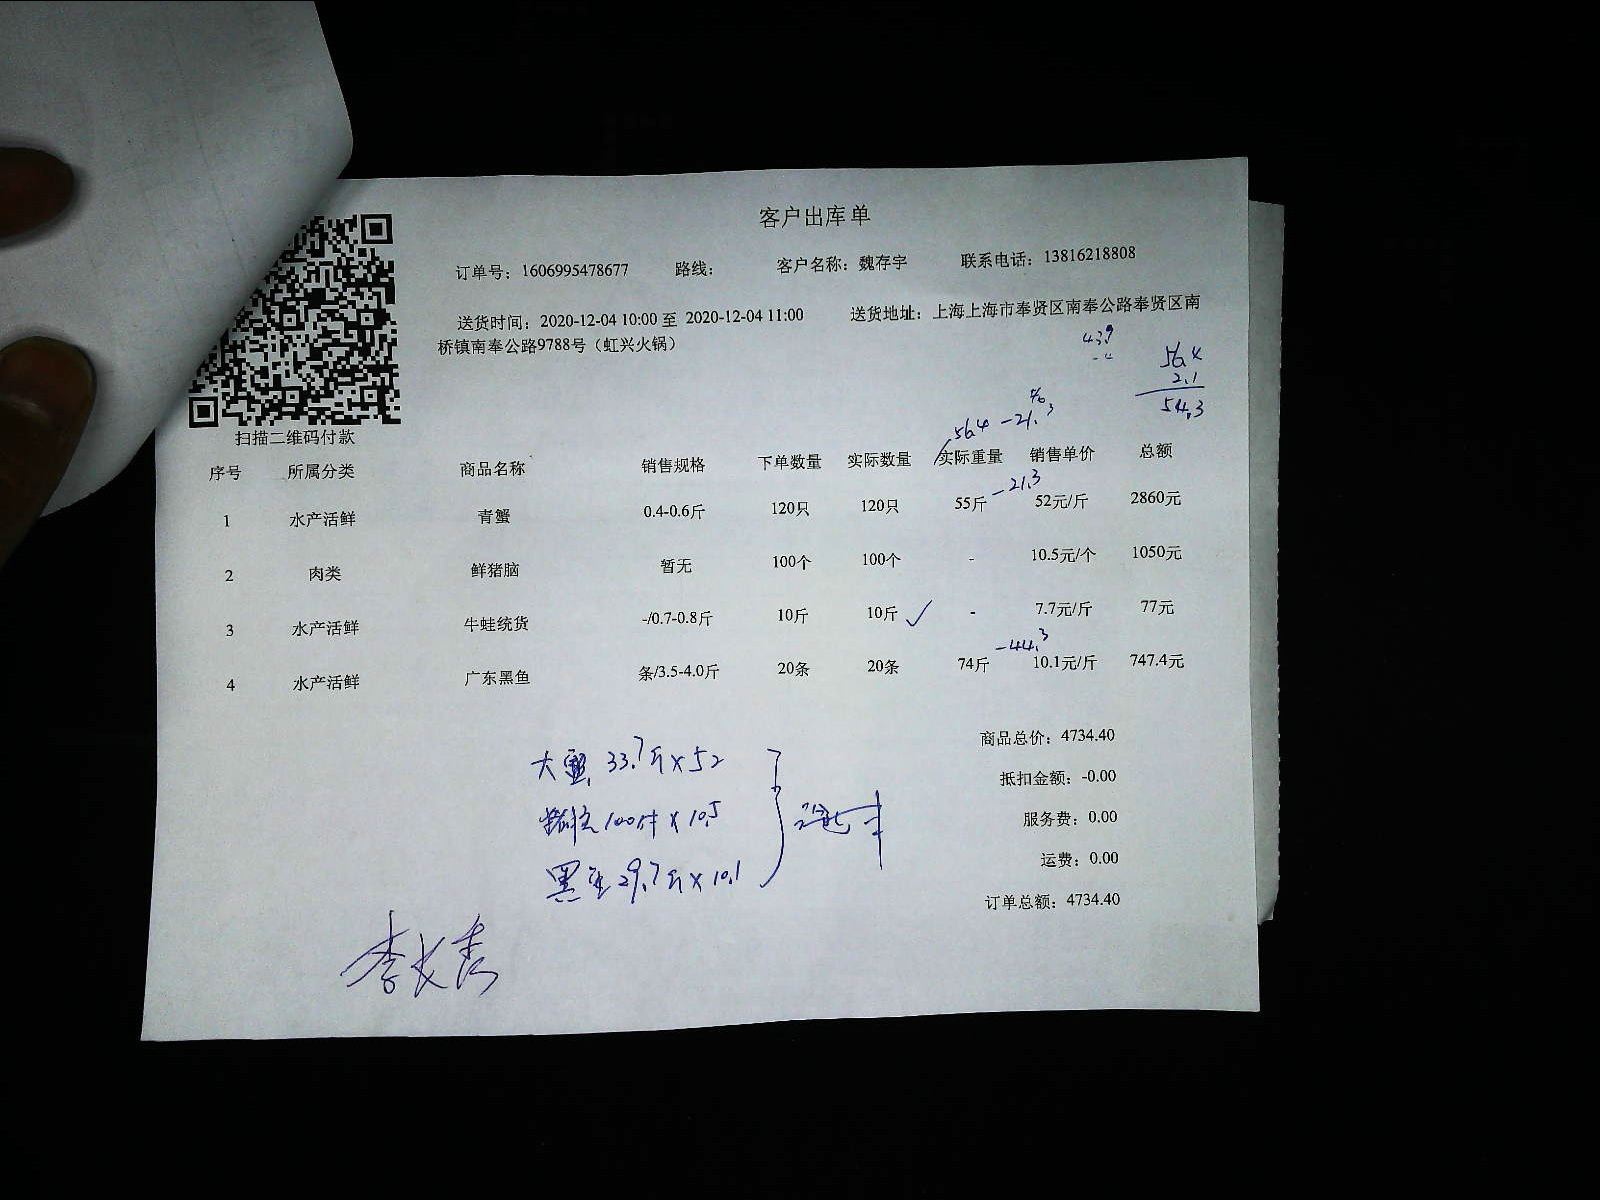 客户出库单
订单号：1606995478677 路线： 客户名称：魏存宇 联系电话：13816218808
送货时间：2020-12-04 10:00 至 2020-12-04 11:00 送货地址：上海上海市奉贤区南奉公路奉贤区南
桥镇南奉公路9788号（虹兴火锅）
43.9
56.4
2.1
54.3
56.4 -21.3
扫描二维码付款
序号 所属分类 商品名称 销售规格 下单数量 实际数量 实际重量 销售单价 总额
-21.3
1 水产活鲜 青蟹 0.4-0.6斤 120只 120只 55斤 52元/斤 2860元
2 肉类 鲜猪脑 暂无 100个 100个 - 10.5元/个 1050元
3 水产活鲜 牛蛙统货 -/0.7-0.8斤 10斤 10斤 ✓ - 7.7元/斤 77元
-44.3
4 水产活鲜 广东黑鱼 条/3.5-4.0斤 20条 20条 74斤 10.1元/斤 747.4元
商品总价：4734.40
抵扣金额：-0.00
服务费：0.00
运费：0.00
订单总额：4734.40
大蟹 33.7斤×52
100件×10.5
黑鱼 29.7斤×10.1